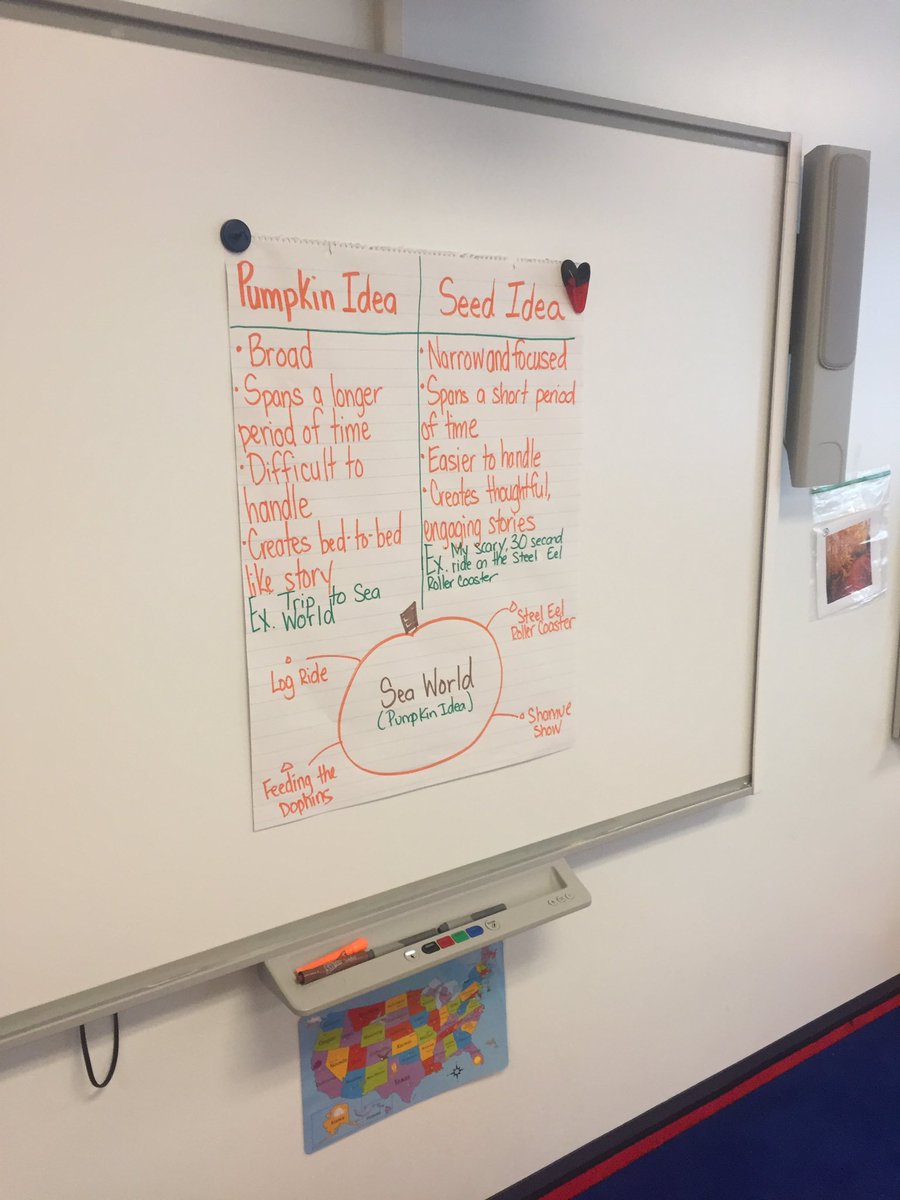 Pumpkin Idea
• Broad
• Spans a longer
period of time
• Difficult to
handle
• Creates bed-to-bed
like story
Ex. Trip to Sea
World
Seed Idea
• Narrow and focused
• Spans a short period
of time
• Easier to handle
• Creates thoughtful,
engaging stories
Ex. My scary, 30 second
ride on the Steel Eel
Roller Coaster
Sea World
(Pumpkin Idea)
Log Ride
Steel Eel
Roller Coaster
Feeding the
Dophins
Show